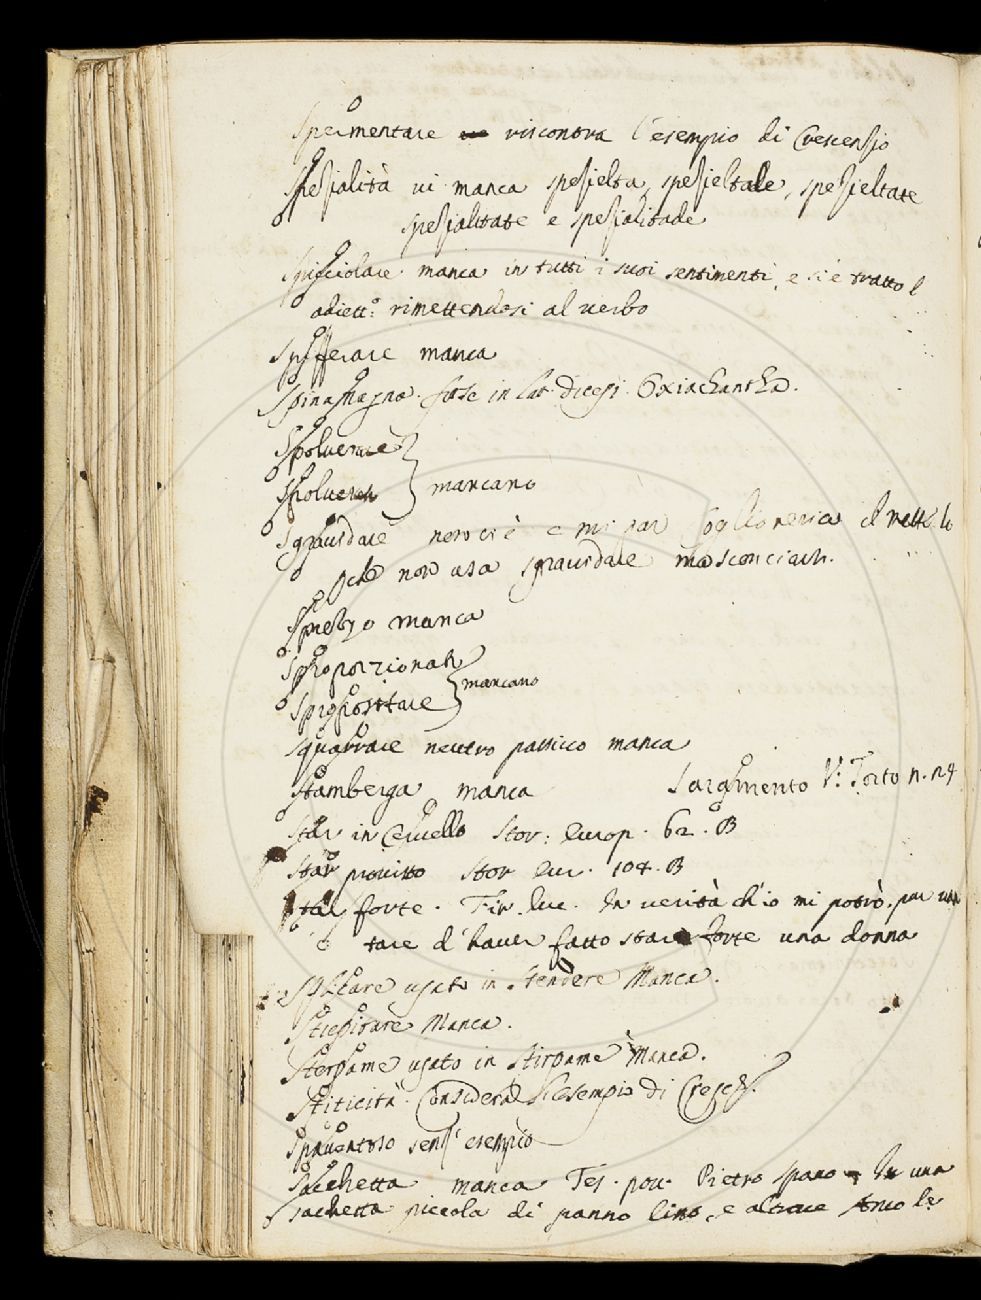 Sperimentare riscontra l'esempio di Crescenzio
Spezialità vi manca spezielta, spezieltale, spezieltate
spezialitate e spezialitade
Spicciolare manca in tutti i suoi sentimenti, e si è tratto l
adiett.º rimettendosi al verbo
Spifferare manca
Spinamagna. forse in lat. dicesi. Oxiachantha.
Spolverare
mancano
Sgravidare non ci è e mi par
che non usa sgravidare ma sconciarsi.
Sprezzo manca
Sproporzionale
mancano
Squarrare neutro passivo manca
Stamberga manca
Sargimento V. Torto n. 24
Star in Cervello Stor: Europ. 62. B
Star provisto Stor Eur. 104. B
Star forte. Fir. luc. In verità ch'io mi potrò, pur van
tare d'haver fatto stare forte una donna
usato in Stendere Manca.
Manca.
Sterpame usato in Stirpame Manca.
Stiticità. Considera l'Esempio di Cresc.
senz' esempio
Sacchetta manca Tes. pov. Pietro Spano In una
sachetta piccola di panno lino, e altrove